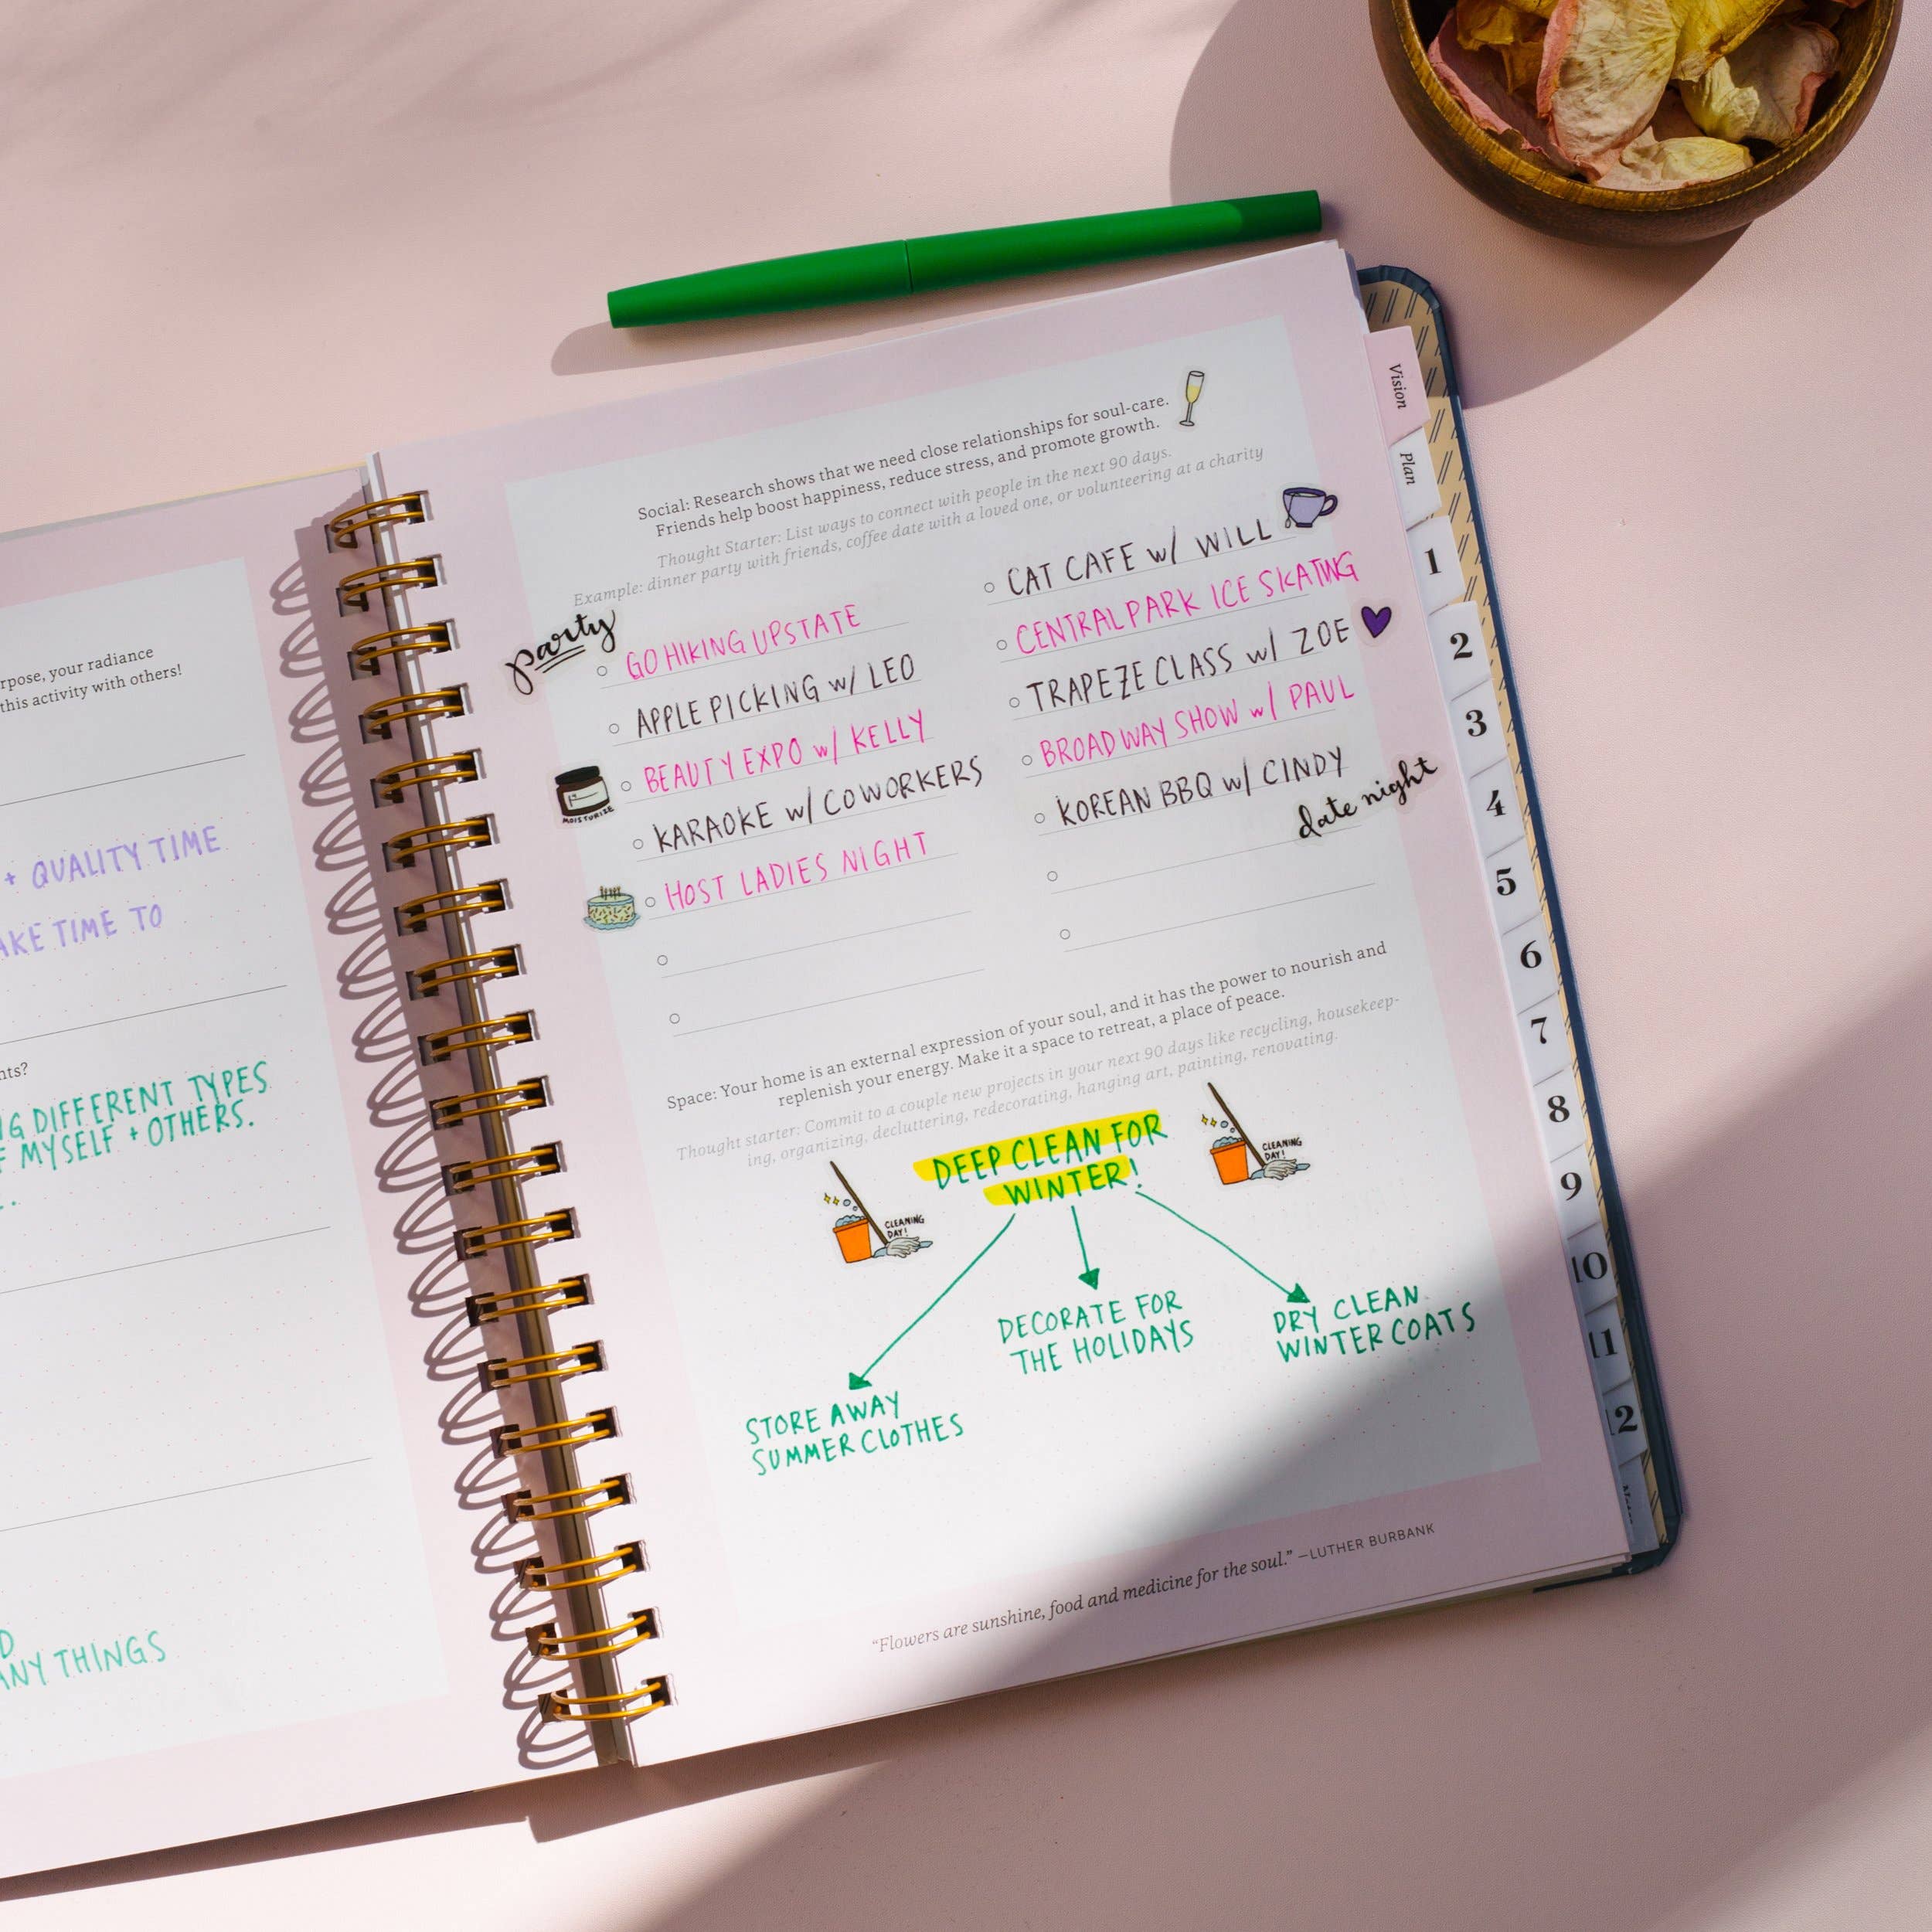 rpose, your radiance
this activity with others!
+ QUALITY TIME
AKE TIME TO
nts?
NG DIFFERENT TYPES
F MYSELF + OTHERS.
D
ANY THINGS
Social: Research shows that we need close relationships for soul-care.
Friends help boost happiness, reduce stress, and promote growth.
Thought Starter: List ways to connect with people in the next 90 days.
Example: dinner party with friends, coffee date with a loved one, or volunteering at a charity
party
GO HIKING UPSTATE
APPLE PICKING w/ LEO
BEAUTY EXPO w/ KELLY
MOISTURIZE
KARAOKE w/ COWORKERS
HOST LADIES NIGHT
CAT CAFE w/ WILL
CENTRAL PARK ICE SKATING
TRAPEZE CLASS w/ ZOE
BROADWAY SHOW w/ PAUL
KOREAN BBQ w/ CINDY
date night
Space: Your home is an external expression of your soul, and it has the power to nourish and
replenish your energy. Make it a space to retreat, a place of peace.
Thought starter: Commit to a couple new projects in your next 90 days like recycling, housekeep-
ing, organizing, decluttering, redecorating, hanging art, painting, renovating.
DEEP CLEAN FOR
WINTER!
CLEANING
DAY!
CLEANING
DAY!
STORE AWAY
SUMMER CLOTHES
DECORATE FOR
THE HOLIDAYS
DRY CLEAN
WINTER COATS
"Flowers are sunshine, food and medicine for the soul." —LUTHER BURBANK
Vision
Plan
1
2
3
4
5
6
7
8
9
10
11
12
Notes